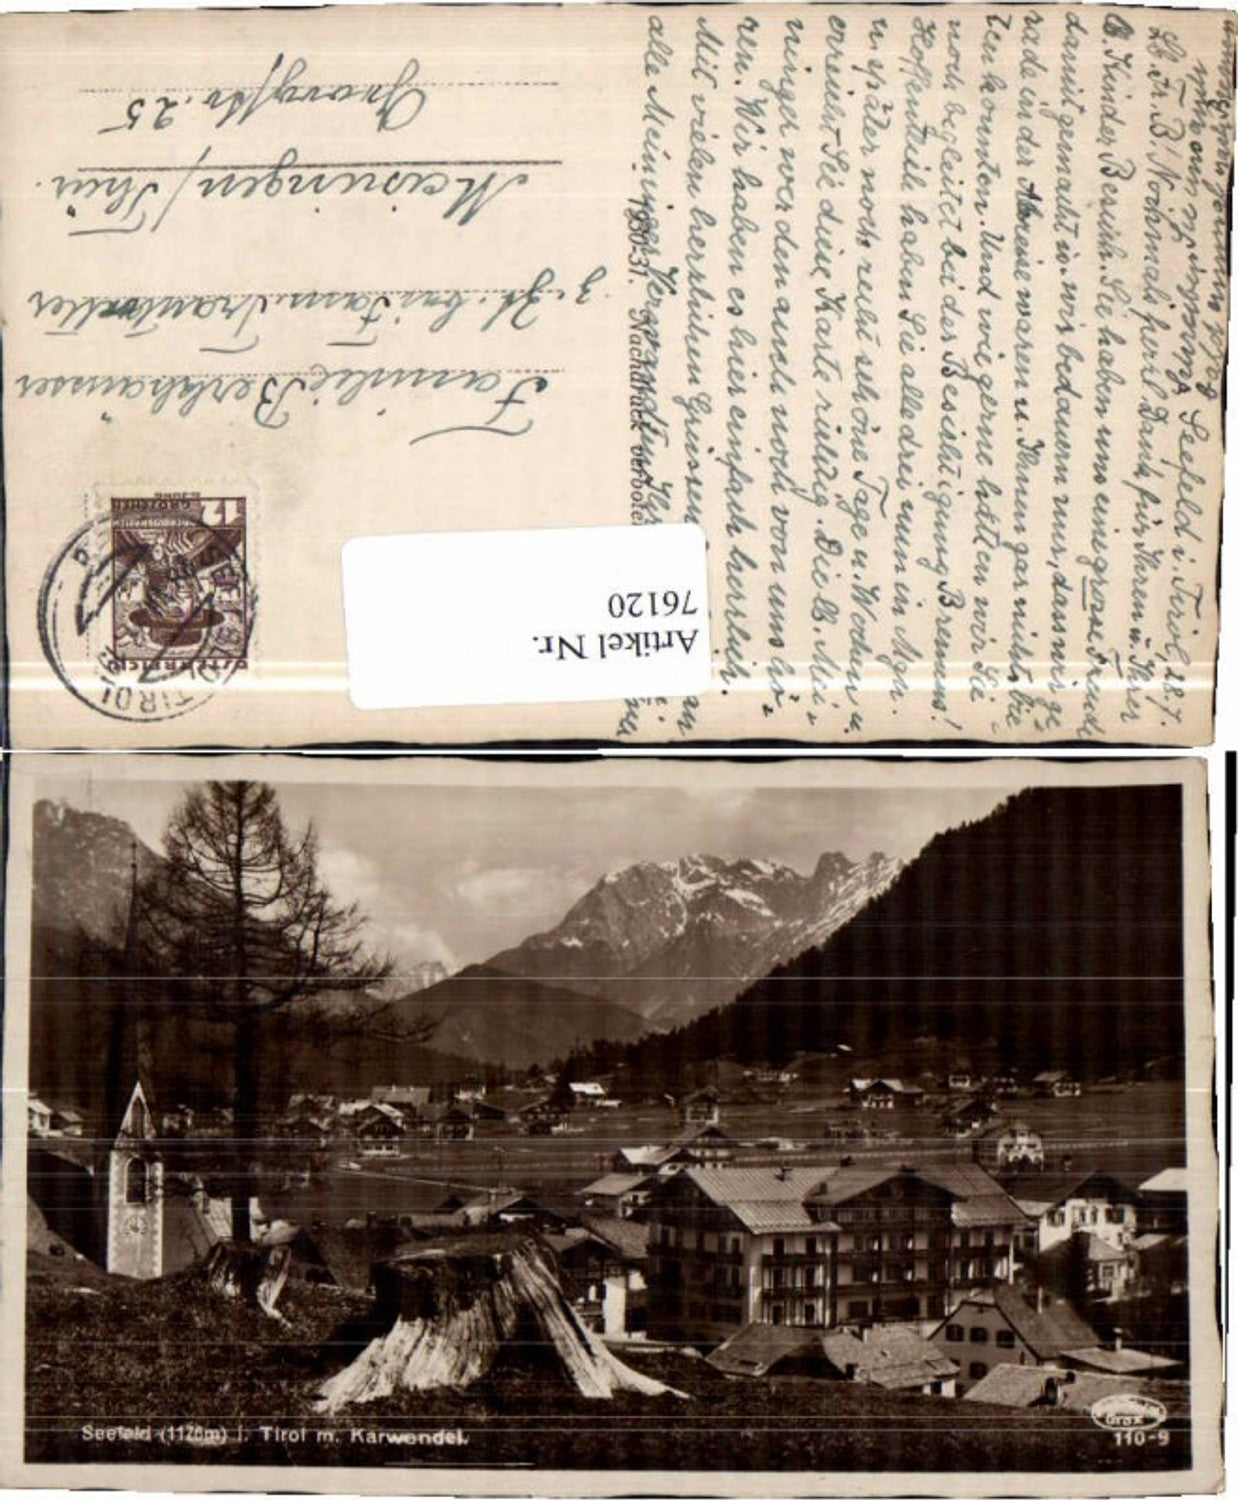 Seefeld i. Tirol, 28.7.
Lb. Fr. B. Nochmals herzl. Dank für Ihren u. Ihrer
lb. Kinder Besuch. Sie haben uns eine grosse Freude
damit gemacht u. wir bedauern nur, dass wir ge=
rade in der Abreise waren u. Ihnen gar nichts bie=
ten konnten. Und wie gerne hätten wir Sie
noch begleitet bei der Besichtigung Bremens!
Hoffentlich haben Sie alle drei nun in Mgn.
u. später noch recht schöne Tage u. Wochen u.
erreicht Sie diese Karte richtig. Die lb. Mei=
ninger werden auch noch von uns hö=
ren. Wir haben es hier einfach herrlich.
Mit vielen herzlichen Grüssen an
alle Meininger
193031. Nachdruck verboten
Familie Berkhausser
z. Zt. bei Fam. Trautvetter
Meiningen/Thür.
Georgstr. 25
12
GROSCHEN
ÖSTERREICH
SEEFELD
TIROL
Artikel Nr.
76120
Seefeld (1176m) i. Tirol m. Karwendel.
Grax
110-9